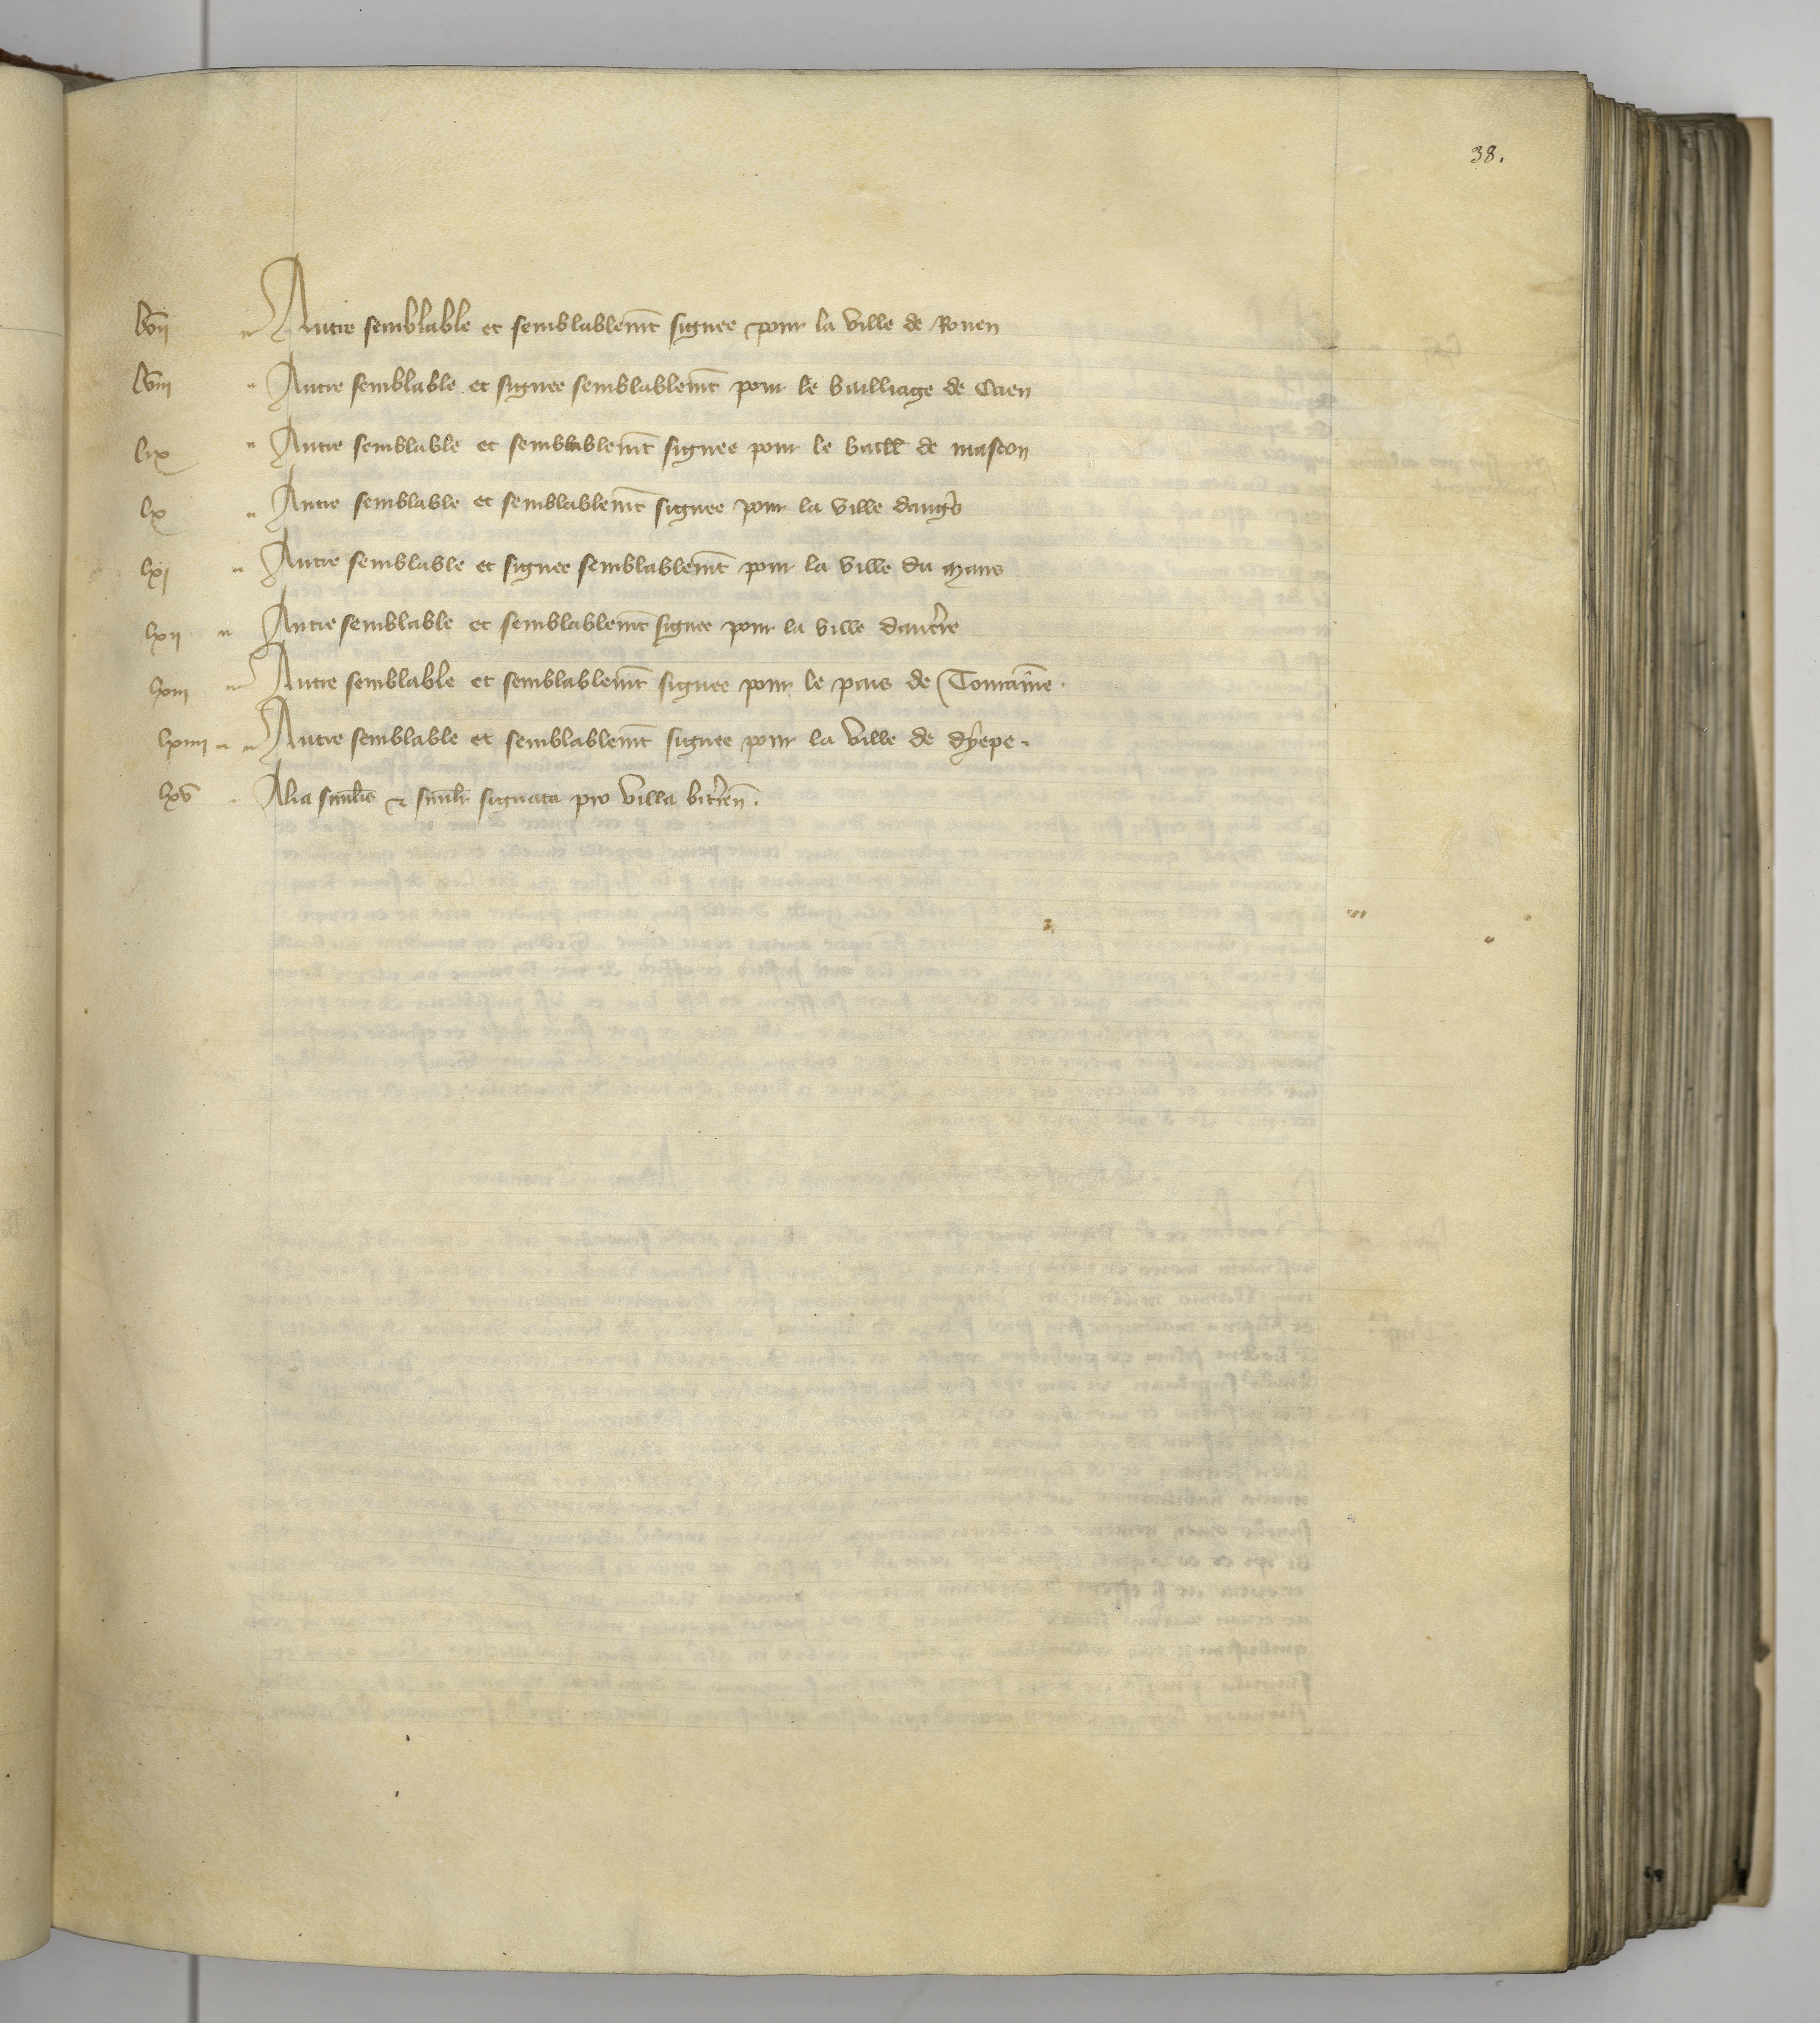 38.
lvii Autre semblable et semblablemt signee pour la ville de Rouen
lviii Autre semblable et signee semblablemt pour le bailliage de Caen
lix Autre semblable et semblablemt signee pour le baill de mascon
lx Autre semblable et semblablemt signee pour la ville dangrs
lxi Autre semblable et signee semblablemt pour la ville du mans
lxii Autre semblable et semblablemt signee pour la ville daucrre
lxiii Autre semblable et semblablemt signee pour le pais de Touraine.
lxiiii Autre semblable et semblablemt signee pour la ville de dyepe.
lxv Alia simlis & similr signata pro villa bitren.